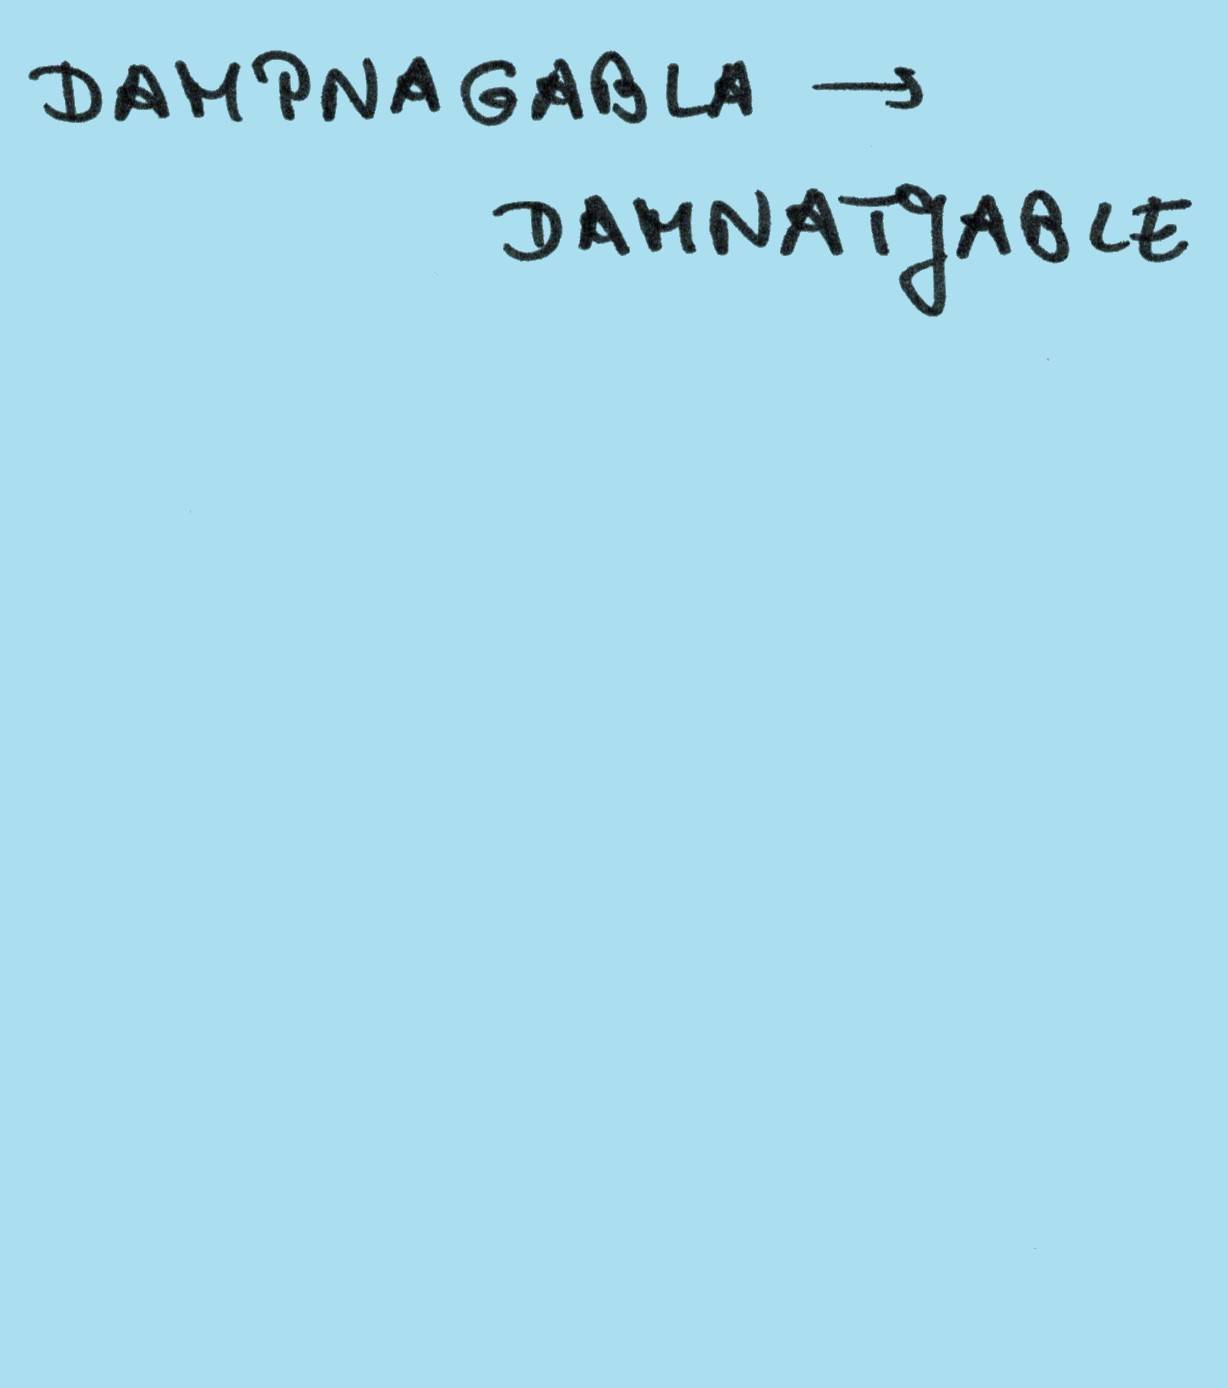 DAMPNAGABLA →
DAMNATgABLE